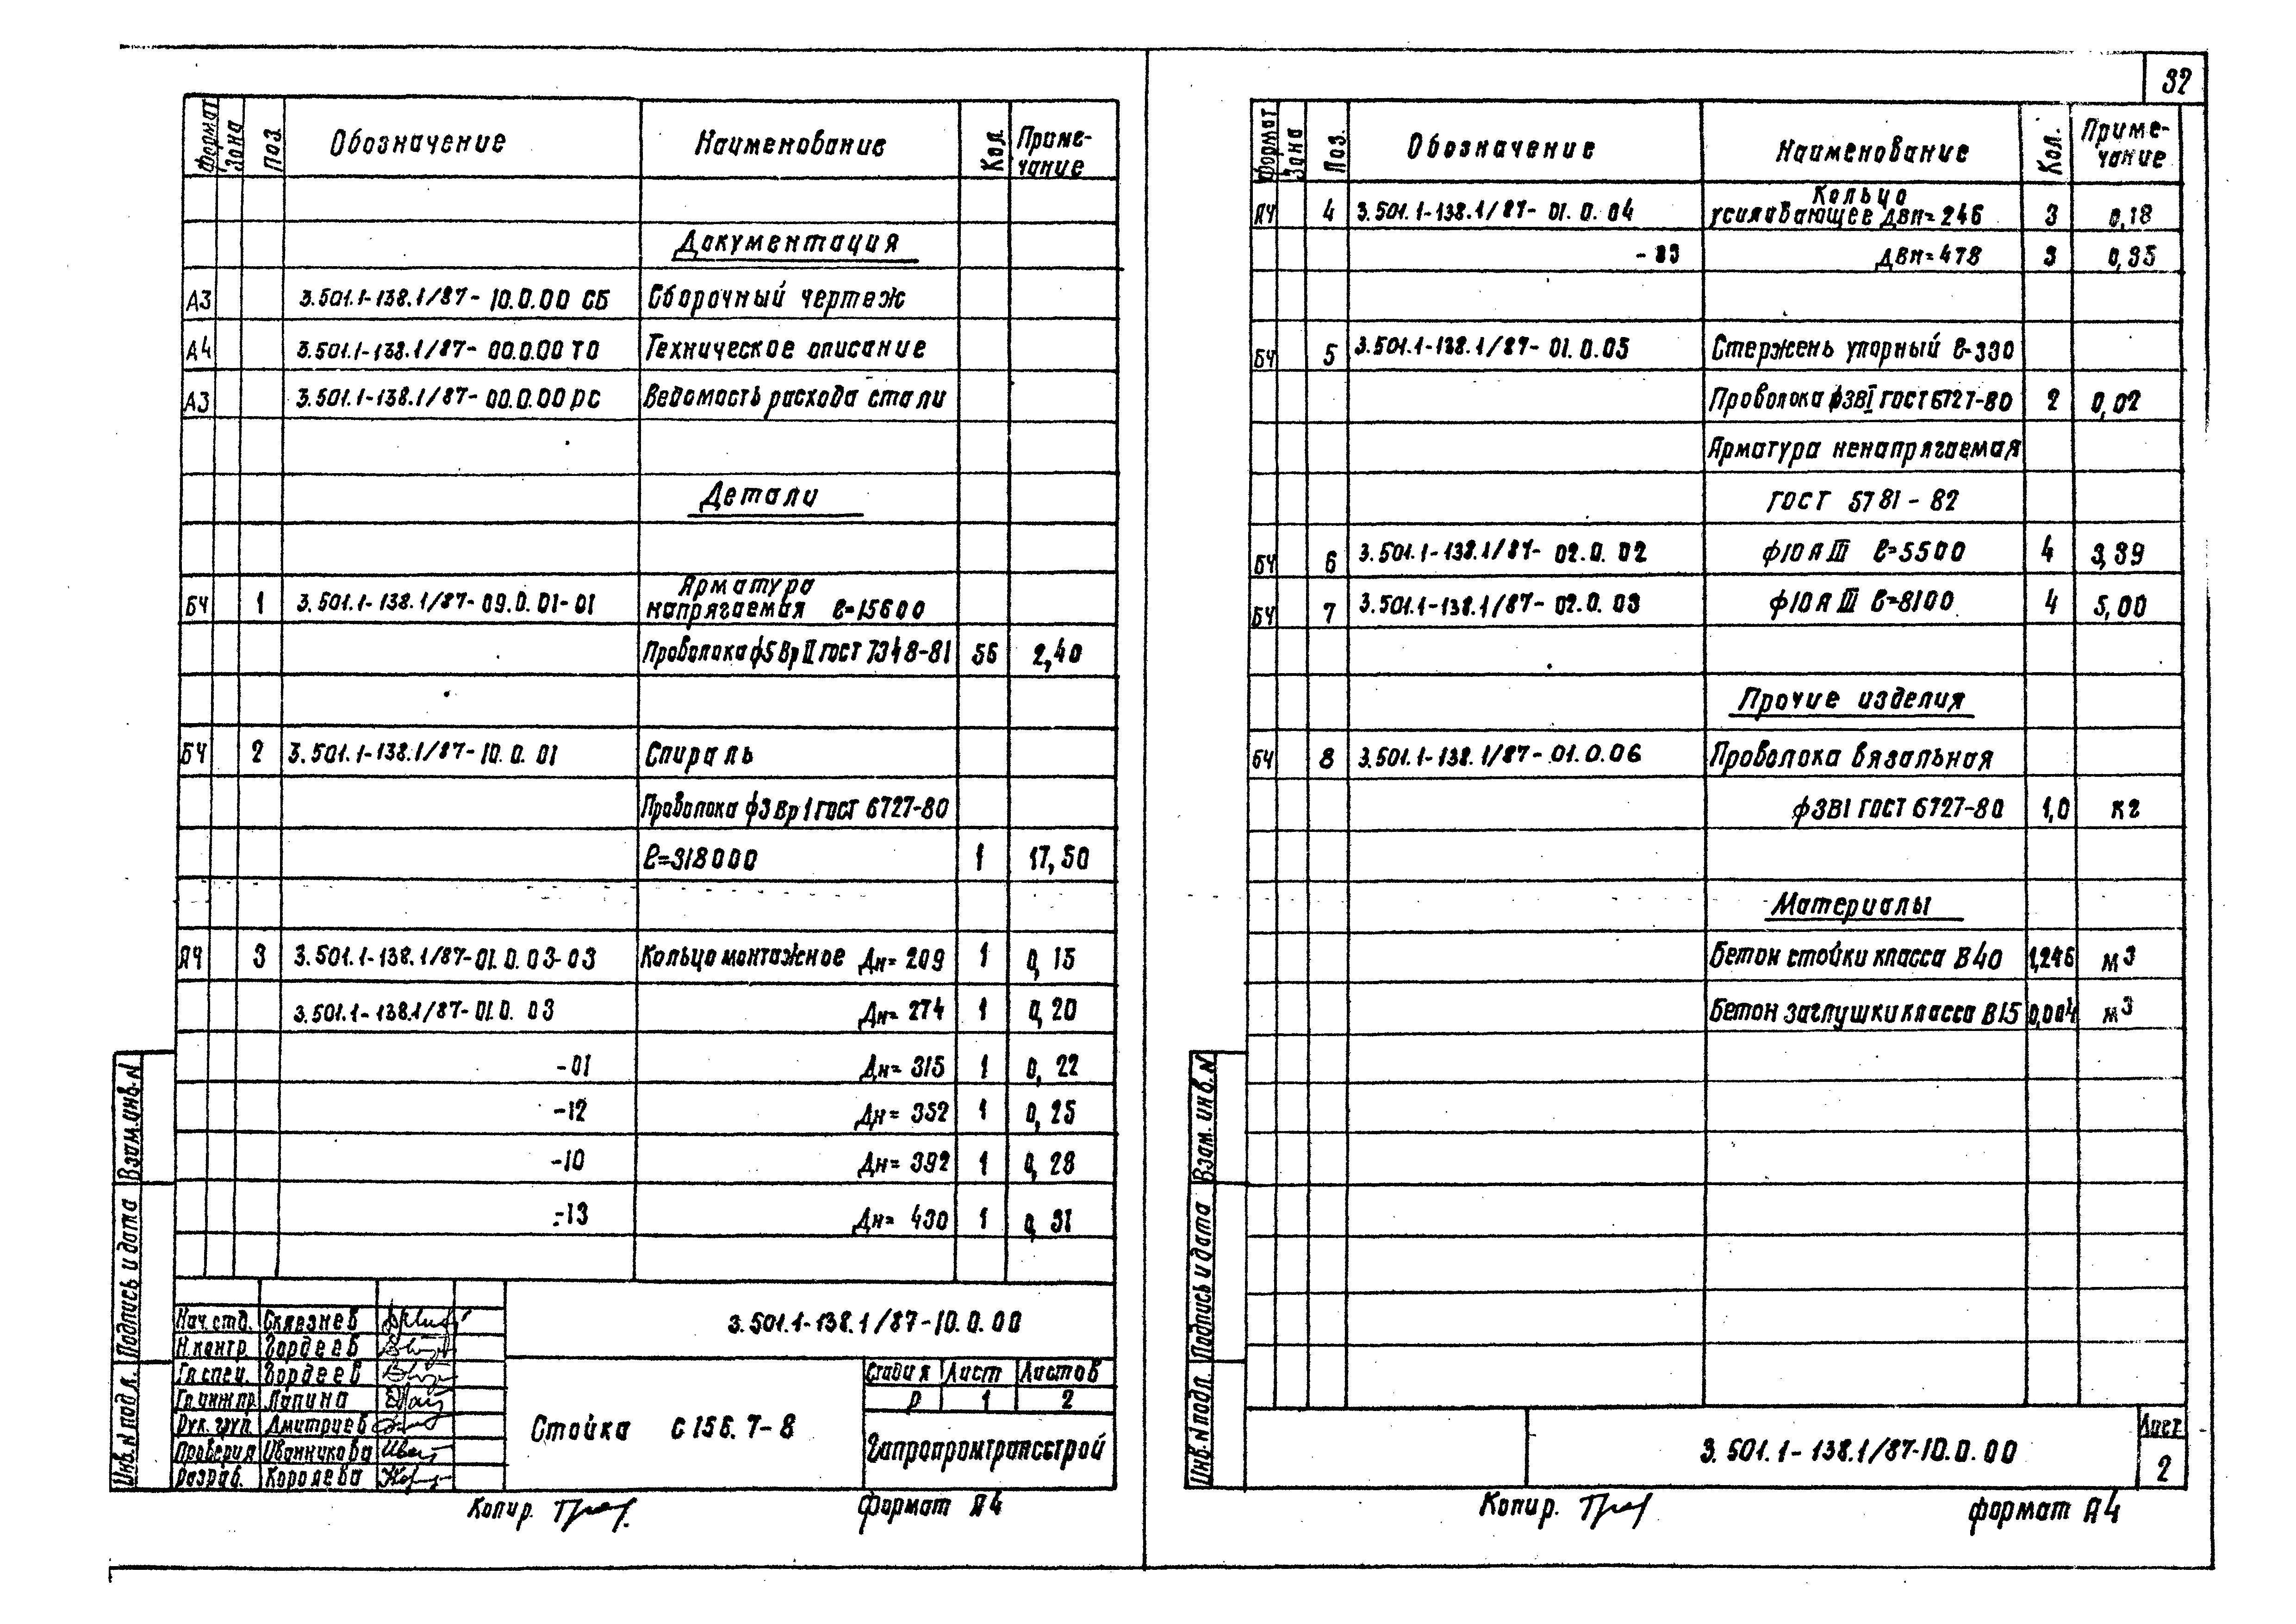 32
Формат Зона Поз. Обозначение Наименование Кол. Приме-
чание
Документация
А3 3.501.1-138.1/87-10.0.00 СБ Сборочный чертеж
А4 3.501.1-138.1/87-00.0.00 ТО Техническое описание
А3 3.501.1-138.1/87-00.0.00 РС Ведомость расхода стали
Детали
Арматура
БЧ 1 3.501.1-138.1/87-09.0.01-01 напрягаемая ℓ=15600
Проволока ф5 Вр II ГОСТ 7348-81 56 2,40
БЧ 2 3.501.1-138.1/87-10.0.01 Спираль
Проволока ф3 Вр I ГОСТ 6727-80
ℓ=318000 1 17,50
А4 3 3.501.1-138.1/87-01.0.03-03 Кольцо монтажное Дн=209 1 0,15
3.501.1-138.1/87-01.0.03 Дн=274 1 0,20
-01 Дн=315 1 0,22
-12 Дн=352 1 0,25
-10 Дн=392 1 0,28
-13 Дн=430 1 0,31
Инв.N подл. Подпись и дата Взам.инв.N
Нач.отд. Скляznев
Н.контр. Гордеев
Гл.спец. Гордеев
Гл.инж.пр. Лапина
Рук. груп. Дмитриев
Проверил Иванникова
Разраб. Королева
3.501.1-138.1/87-10.0.00
Стойка С 156.7-8
Стадия Лист Листов
Р 1 2
Гипропромтрансстрой
Копир. формат А4
Формат Зона Поз. Обозначение Наименование Кол. Приме-
чание
Кольцо
А4 4 3.501.1-138.1/87-01.0.04 усиливающее Двн=246 3 0,18
Двн=478 3 0,35
БЧ 5 3.501.1-138.1/87-01.0.05 Стержень упорный ℓ-330
Проволока ф3ВI ГОСТ 6727-80 2 0,02
Арматура ненапрягаемая
ГОСТ 5781-82
БЧ 6 3.501.1-138.1/87-02.0.02 ф10 А III ℓ=5500 4 3,39
БЧ 7 3.501.1-138.1/87-02.0.03 ф10 А III ℓ=8100 4 5,00
Прочие изделия
БЧ 8 3.501.1-138.1/87-01.0.06 Проволока вязальная
ф3ВI ГОСТ 6727-80 1,0 кг
Материалы
Бетон стойки класса В40 1,246 м3
Бетон заглушки класса В15 0,004 м3
Инв.N подл. Подпись и дата Взам. инв.N
3.501.1-138.1/87-10.0.00
Лист
2
Копир. формат А4